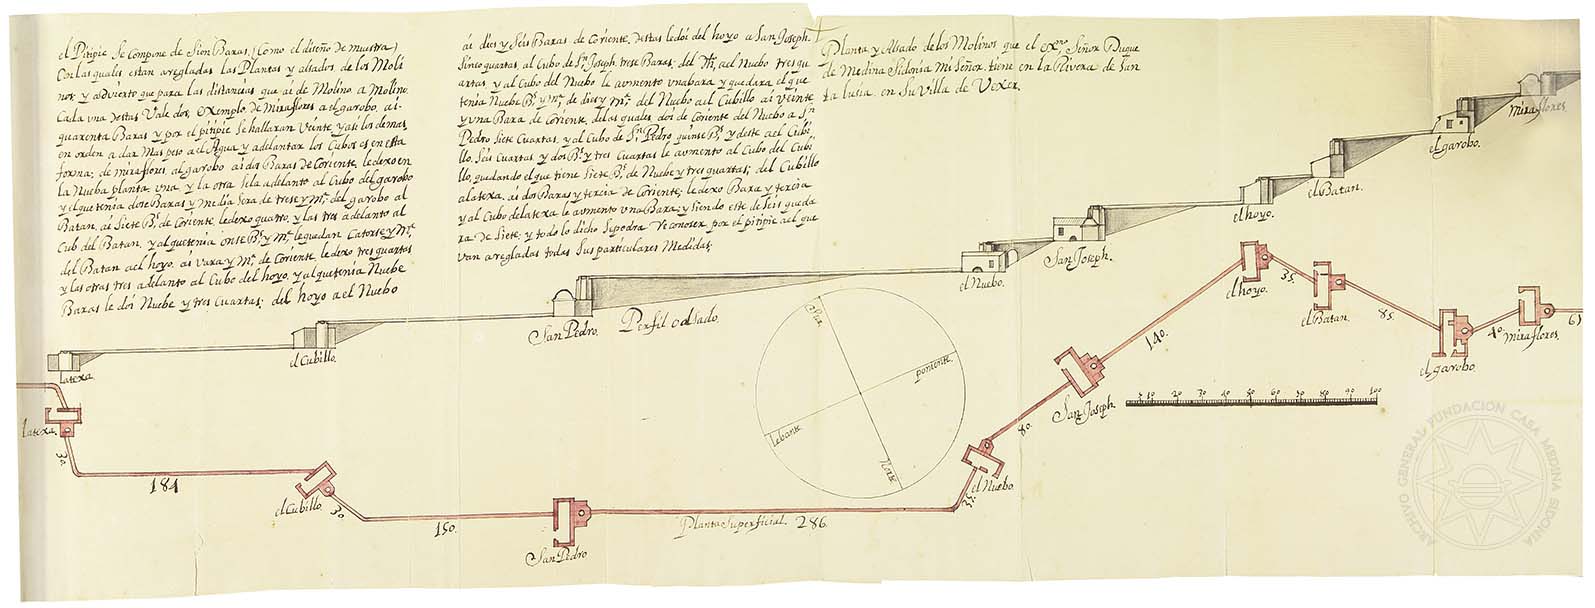 el Pitipie Se Compone de Sien Baras, (Como el diseño de muestra)
Con las quales estan aregladas las Plantas y alsados de los Moli
nos. y adVierto que para las distancias que ai de Molino a Molino
Cada Una destas Vale dos, exemplo de Miraflores a el garobo, ai-
quarenta Baras y por el pitipie se hallaran Veinte, y asi los demas,
en orden a dar Mas peso a el Agua y adelantar los Cubos es en esta
forma; de miraflores, al garobo ai dos Baras de Coriente, le dexo en
la Nueba planta Una y la otra Se la adelanto al Cubo del garobo
y el que tenia dose Baras y Media Sera de trese y Mª. del garobo al
Batan, ai Siete Bˢ. de Coriente, le dexo quatro, y las tres adelanto al
Cub del Batan, y al que tenia onse Bˢ. y Mª. le quedan Catorse y Mª.
del Batan a el hoyo, ai Vara y Mª. de Coriente, le dexo tres quartas
y las otras tres adelanto al Cubo del hoyo, y al que tenia Nuebe
Baras le doi Nuebe y tres Cuartas; del hoyo a el Nuebo
ai dies y Seis Baras de Coriente, destas le doi del hoyo a San Joseph.
Sinco quartas, al Cubo de Sⁿ. Joseph trese Baras; del a el Nuebo tres qu
artas, y al Cubo del Nuebo le aumento Una bara y quedara el que
tenia Nuebe Bˢ. y mª. de dies y Mª. del Nuebo a el Cubillo ai Veinte
y Una Bara de Coriente, de las quales doi de Coriente del Nuebo a Sⁿ.
Pedro Siete Cuartas, y al Cubo de Sⁿ. Pedro quinse Bˢ. y deste a el Cubi-
llo, Seis Cuartas y dos Bˢ. y tres Cuartas le aumento al Cubo del Cubi
llo, quedando el que tiene Siete Bˢ. de Nuebe y tres quartas; del Cubillo
a latexa, ai dos Baras y tercia de Coriente; le dexo Bara y tercia
y al Cubo de latexa le aumento Una Bara; y Siendo este de Seis queda
ra de Siete; y todo lo dicho Se podra Reconoser por el pitipie a el que
Van aregladas todas Sus particulares Medidas.
Planta y Alsado de los Molinos que el exᵐᵒ. Señor Duque
de Medina Sidonia Mi Señor, tiene en la Rivera de San
ta lusia en Su Villa de Vexer,
Miraflores
el garobo.
el Batan.
el hoyo.
San Joseph.
el Nuebo.
San Pedro. Perfil o alsado.
el Cubillo.
latexa
Sur
poniente.
lebante
Norte
5 10 20 30 40 50 60 70 80 90 100
latexa.
30.
184
el Cubillo.
30.
150.
San Pedro
Planta Superficial. 286.
35.
el Nuebo.
80.
San Joseph.
140.
el hoyo.
35.
el Batan.
85.
el garobo.
40.
Miraflores.
61
ARCHIVO GENERAL FUNDACIÓN CASA MEDINA SIDONIA